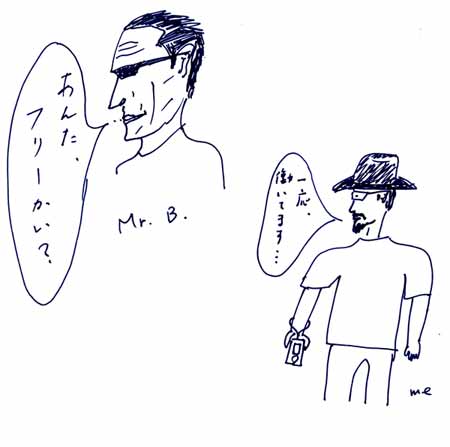 あんた、
フリーかい？
Mr. B.
一応、
働いてます…
me